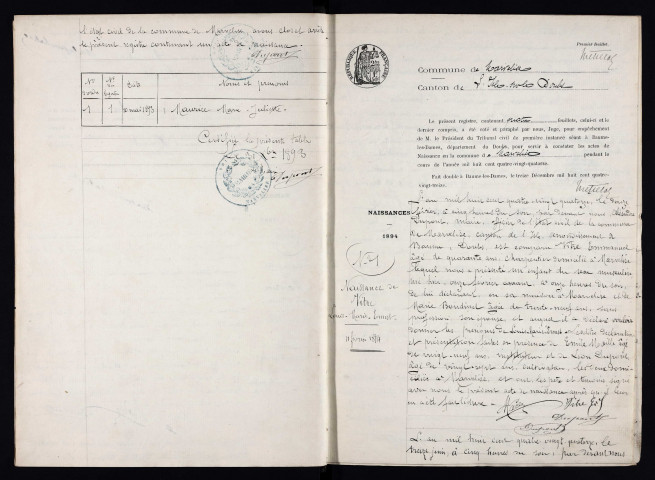 d'état civil de la commune de Marvelise, avons clos et arrêté
le présent registre contenant un acte de naissance.
Dupont
Nos
Date
Noms et prénoms
1 1 mai 1893 Maurice Marie Juliette
Certifié la présente table
1893
Dupont
Premier feuillet.
Commune de Marvelise
Canton de l'Isle-sur-le-Doubs
Le présent registre, contenant quatre feuillets, celui-ci et le
dernier compris, a été coté et paraphé par nous, Juge, pour empêchement
de M. le Président du Tribunal civil de première instance séant à Baume-
les-Dames, département du Doubs, pour servir à constater les actes de
Naissance en la commune de Marvelise pendant le
cours de l'année mil huit cent quatre-vingt-quatorze.
Fait double à Baume-les-Dames, le treize Décembre mil huit cent quatre-
vingt-treize.
NAISSANCES
1894
No 1
Naissance de
Vitre
Louis-Marie-Ernest
11 février 1894
L'an mil huit cent quatre-vingt quatorze, le douze
février, à cinq heures du soir, par devant nous
Dupont, maire, officier de l'état civil de la commune
de Marvelise, canton de l'Isle, arrondissement de
Baume, Doubs, est comparu Vitre Emmanuel
âgé de quarante ans, charpentier domicilié à Marvelise
lequel nous a présenté un enfant du sexe masculin
né hier, onze février courant, à onze heures du soir,
de lui déclarant, en sa maison à Marvelise, et de
Marie Bourdinel âgée de trente-neuf ans, sans
profession, son épouse, et auquel il a déclaré vouloir
donner les prénoms de Louis-Marie-Ernest. Lesdites déclaration
et présentation faites en présence de Emile âgé
de vingt-neuf ans, instituteur et de Léon Dupont
âgé de vingt-sept ans, cultivateur, les deux domi-
ciliés à Marvelise, et ont les père et témoins signé
avec nous le présent acte de naissance après qu'il leur
en a été fait lecture.
Vitre
Dupont
Dupont
L'an mil huit cent quatre-vingt quatorze, le
treize juin, à cinq heures du soir, par devant nous